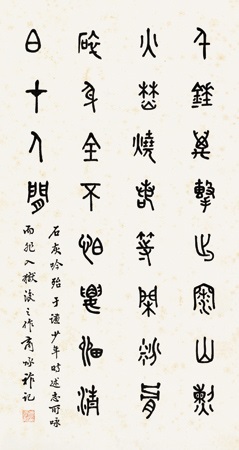 千錘萬擊出深山烈
火焚燒若等閒粉骨
碎身全不怕要留清
白在人間
石灰吟殆于謙少年時述志所詠
而非入獄後之作商承祚記